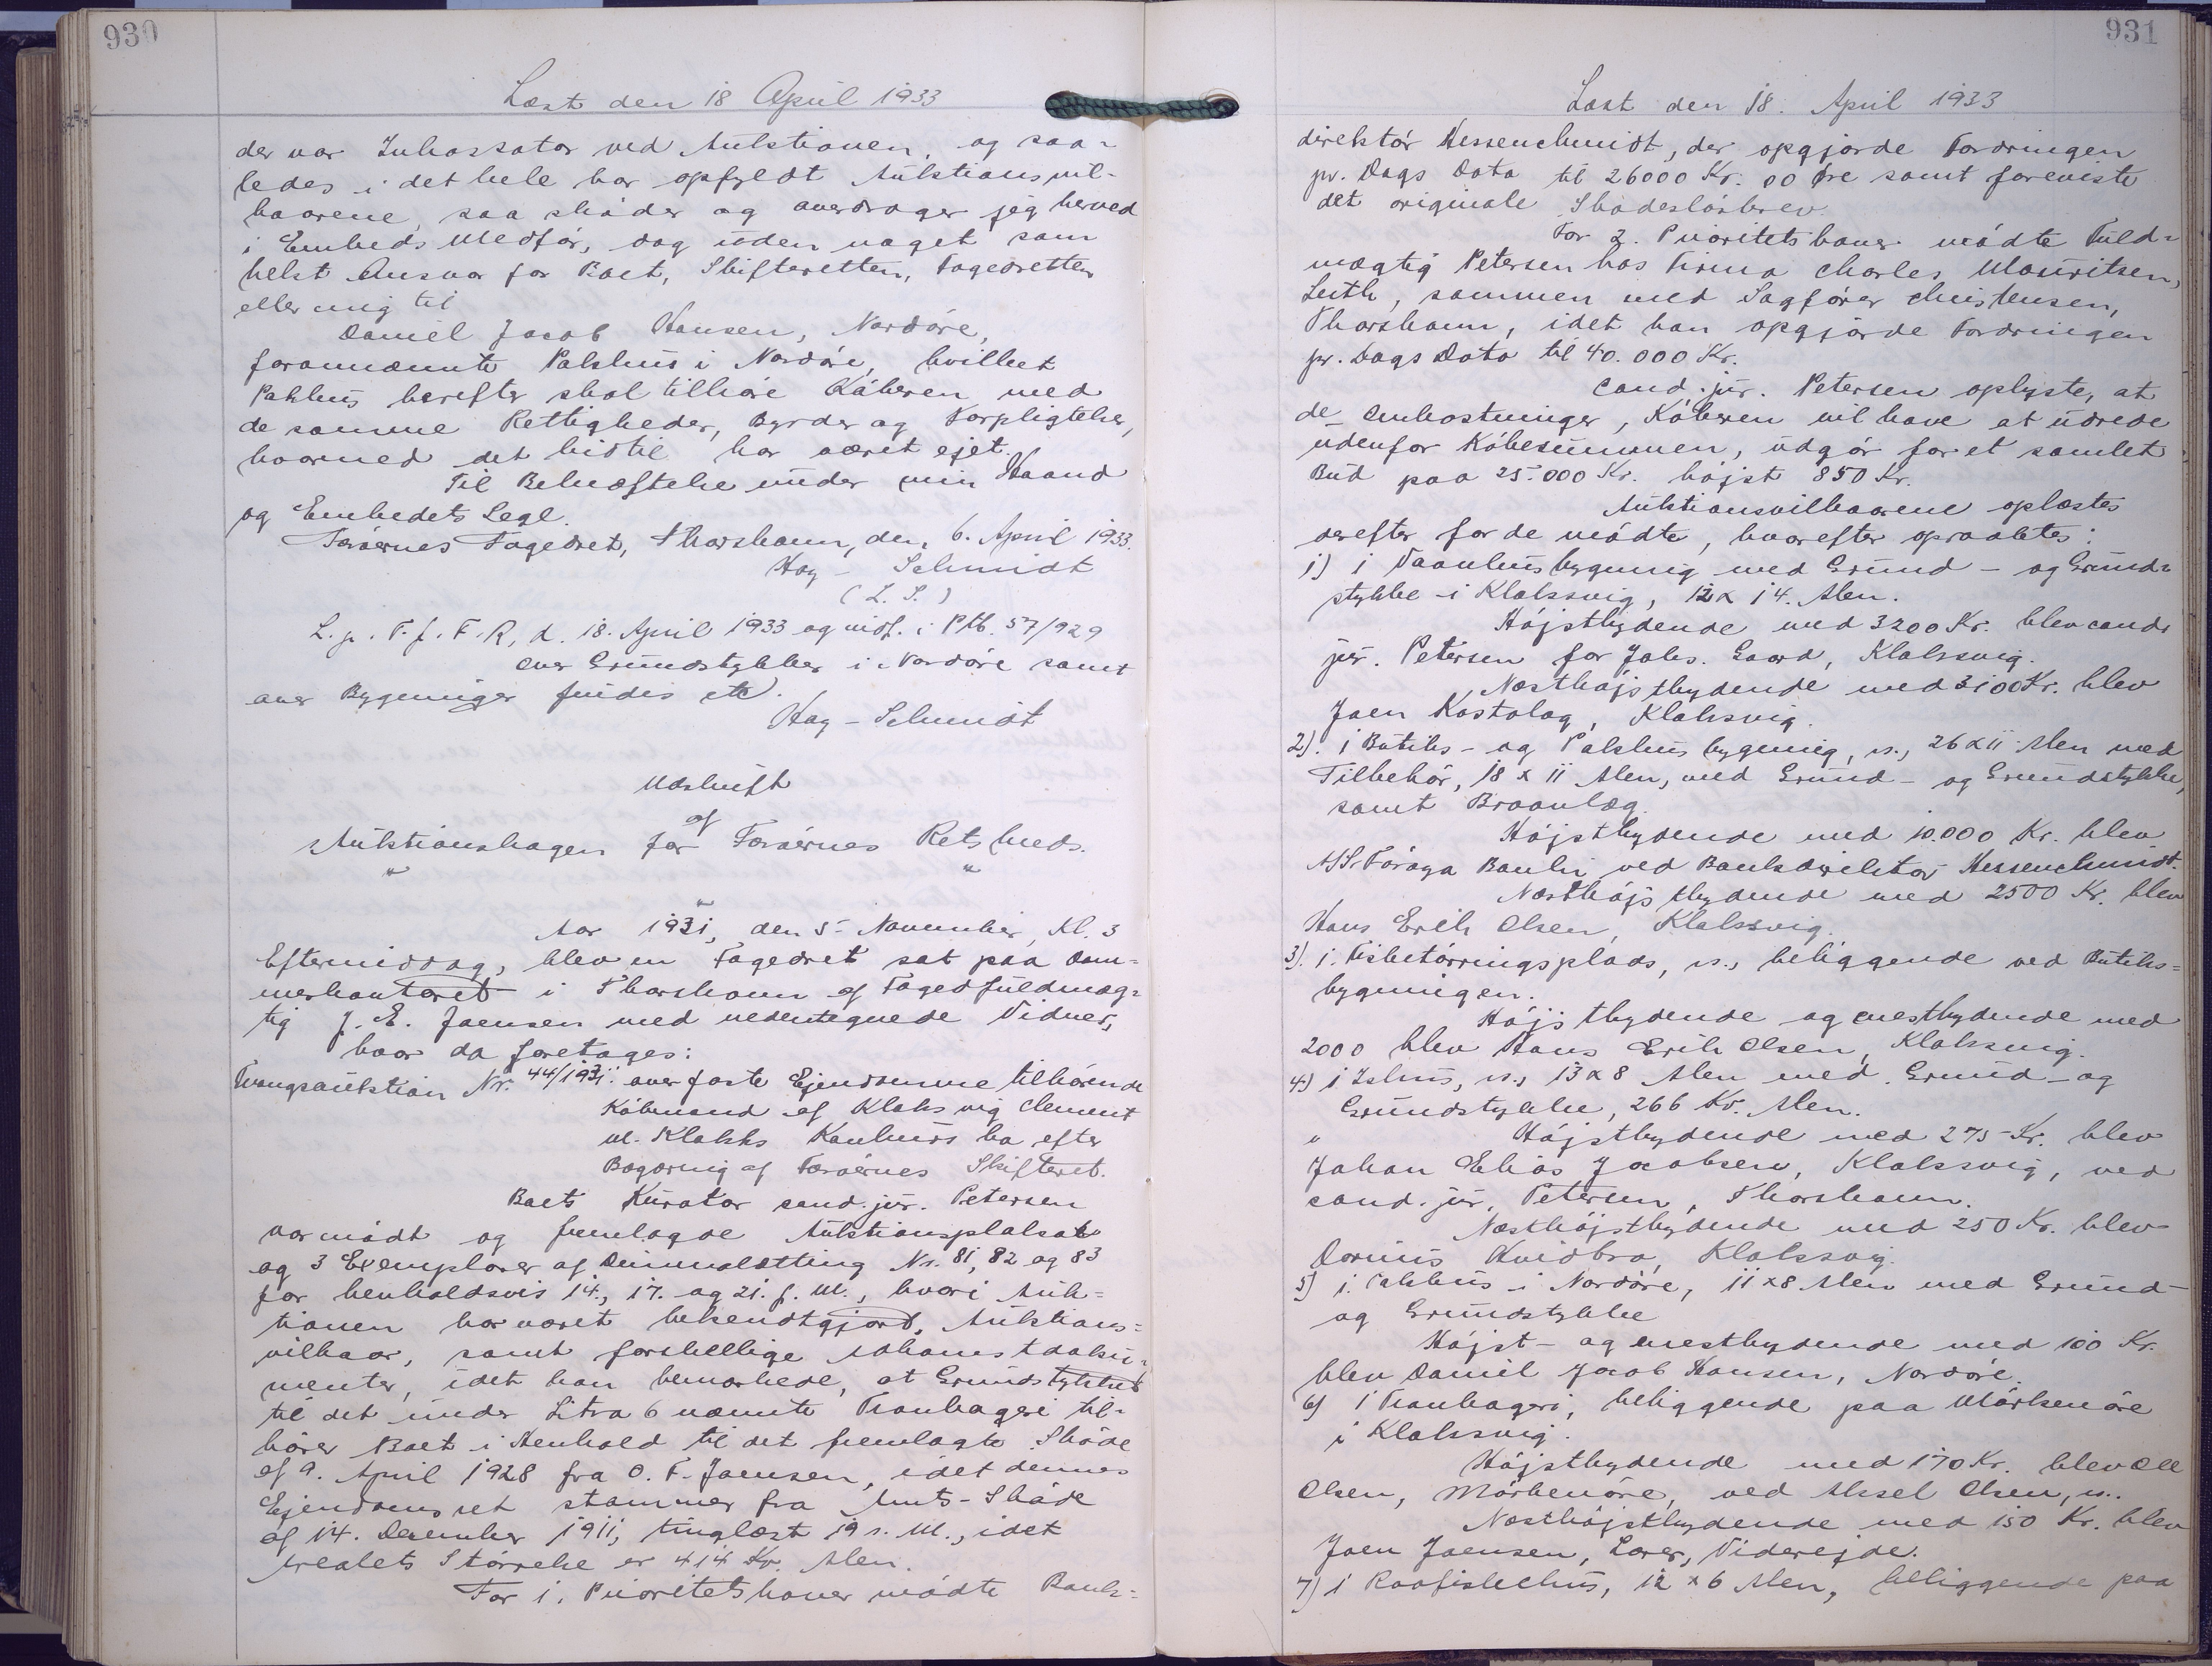 930
Læst den 18 April 1933
der var Inkassator ved Auktionen, og saa-
ledes i det hele har opfyldt Auktionsvil-
kaarene, saa skøder og overdrager jeg herved
i Embeds Medfør, dog uden noget som
helst Ansvar for Boet, Skifteretten, Fogedretten
eller mig til
Daniel Jacob Hansen, Nordøre,
forannævnte Pakhus i Nordøre, hvilket
Pakhus herefter skal tilhøre Køberen med
de samme Rettigheder, Byrder og Forpligtelser,
hvormed det hidtil har været ejet.
Til Bekræftelse under min Haand
og Embedets Segl.
Færøernes Fogedret, Thorshavn, den 6. April 1933.
Høy - Schmidt
(L. S.)
L. p. T. f. F. R, d. 18. April 1933 og vidf. i Ptb. 57/929
Over Grundstykker i Nordøre samt
over Bygninger findes ik.
Høy - Schmidt
Udskrift
af
Auktionsbogen for Færøernes Retskreds.
" "
"
Aar 1931, den 5 November, Kl. 3
Eftermiddag, blev en Fogedret sat paa Dom-
merkontoret i Thorshavn af Fogedfuldmæg-
tig J. E. Joensen med nedentegnede Vidner,
hvor da foretoges:
Tvangsauktion Nr. 44/1931: over faste Ejendomme tilhørende
Købmand af Klaksvig Clement
m. Klakks Konkurs bo efter
Begæring af Færøernes Skifteret.
Boets Kurator cand. jur. Petersen
var mødt og fremlagde Auktionsplakat
og 3 Exemplarer af Dimmalætting Nr. 81, 82 og 83
for henholdsvis 14., 17. og 21. f. M., hvori Auk-
tionen har været bekendtgjord, Auktions-
vilkaar, samt forskellige Adkomstdoku-
menter, idet han bemærkede, at Grundstykket
til det under Litra 6 nævnte Tranbageri til-
hører Boet i Henhold til det fremlagte Skøde
af 9. April 1928 fra O. F. Joensen, idet dennes
Ejendomsret stammer fra Amts-Skøde
af 14. December 1911, tinglæst 19 s. M., idet
Arealets Størrelse er 414 Kv. Alen.
For 1. Prioritetshaver mødte Bank-
931
Læst den 18. April 1933
direktør Hessenchmidt, der opgjorde Fordringen
pr. Dags Dato til 26000 Kr. 00 Øre samt foreviste
det originale Skadesløsbrev.
For 2. Prioritetshaver mødte Fuld-
mægtig Petersen hos Firma Charles Mauritzen,
Leith, sammen med Sagfører Christensen,
Thorshavn, idet han opgjorde Fordringen
pr. Dags Dato til 40.000 Kr.
Cand. jur. Petersen oplyste, at
de Omkostninger, Køberen vil have at udrede
udenfor Købesummen, udgør for et samlet
Bud paa 25.000 Kr. højst 850 Kr.
Auktionsvilkaarene oplæstes
derefter for de mødte, hvorefter opraabtes:
1) 1 Vaanhusbygning med Grund - og Grund-
stykke i Klaksvig, 12 x 14. Alen.
Højstbydende med 3200 Kr. blev cand.
jur. Petersen for Johs. Gaard, Klaksvig.
Næsthøjstbydende med 3100 Kr. blev
Joen Kastalag, Klaksvig.
2). 1 Butiks- og Pakhus bygning, s., 26 x 11 Alen med
Tilbehør, 18 x 11 Alen, med Grund- og Grundstykke,
samt Broanlæg.
Højstbydende med 10.000 Kr. blev
A/S. Føroya Banki ved Bankdirektør Hessenchmidt.
Næsthøjstbydende med 2500 Kr. blev
Hans Erik Olsen, Klaksvig.
3). 1. Fisketørringsplads, s., beliggende ved Butiks-
bygningen.
Højstbydende og enestbydende med
2000 blev Hans Erik Olsen, Klaksvig.
4) 1 Ishus, s., 13 x 8 Alen med Grund- og
Grundstykke, 266 Kv. Alen.
" Højstbydende med 275 Kr. blev
Johan Elias Jacobsen, Klaksvig, ved
cand. jur. Petersen, Thorshavn.
Næsthøjstbydende med 250 Kr. blev
Dorinus Kvidbro, Klaksvig.
5) 1. Pakhus i Nordøre, 11 x 8 Alen med Grund-
og Grundstykke
Højst- og enestbydende med 100 Kr.
blev Daniel Jacob Hansen, Nordøre.
6) 1 Tranbageri, beliggende paa Mørkenøre
i Klaksvig.
Højstbydende med 170 Kr. blev Ole
Olsen, Mørkenøre, ved Aksel Olsen, s..
Næsthøjstbydende med 150 Kr. blev
Joen Joensen, Lærer, Viderejde.
7) 1 Raafiskehus, 12 x 6 Alen, beliggende paa